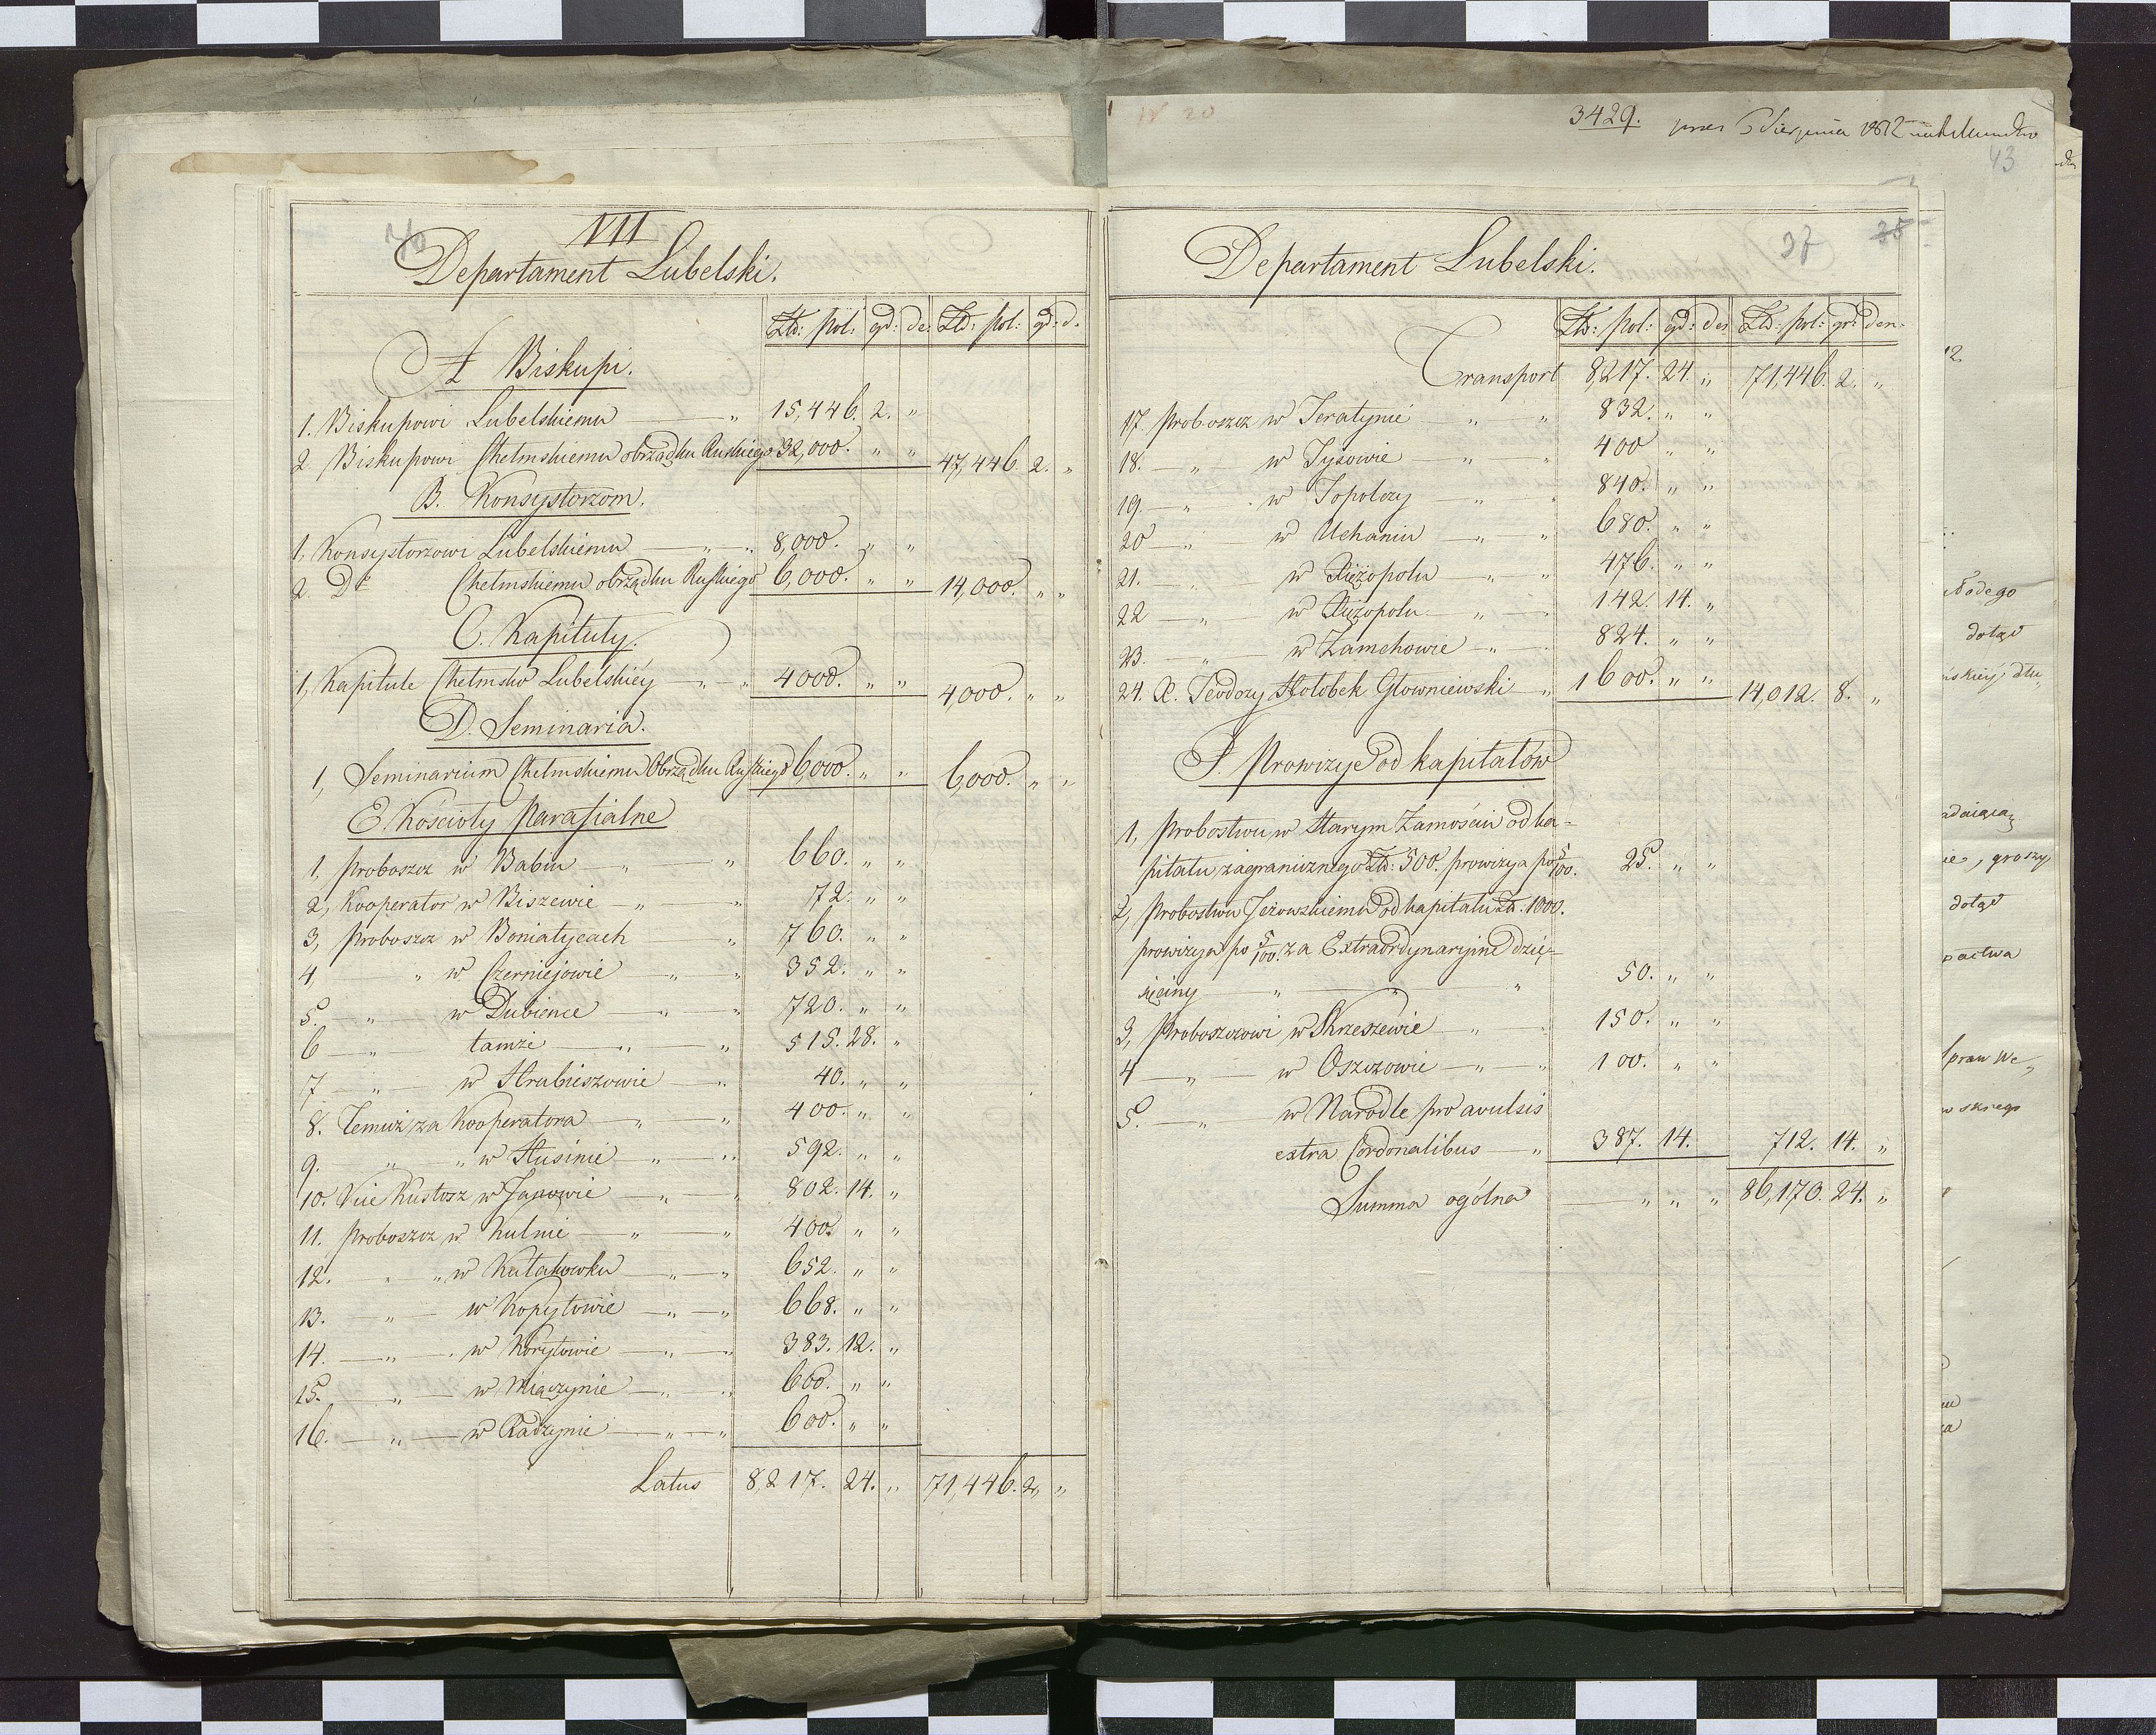 VII
Departament Lubelski.
Zło: pol: gr: de: Zło: pol: gr: d.
A Biskupi.
1. Biskupowi Lubelskiemu — „ 15,446. 2. „
2 Biskupowi Chełmskiemu obrządku Ruskiego 32,000. „ „ 47,446 2. „
B. Konsystorzom.
1, Konsystorzowi Lubelskiemu — „ „ 8,000. „ „
2. Do Chełmskiemu obrządku Ruskiego 6,000. „ „ 14,000. „ „
C. Kapituły.
1, Kapitule Chełmsko Lubelskiey „ — „ 4000. „ „ 4,000. „ „
D. Seminaria.
1, Seminarium Chełmskiemu Obrządku Ruskiego 6,000. „ „ 6,000. „ „
E Kościoły Parafialne
1, Proboszcz w Babin — „ „ 660. „ „
2, Kooperator w Biszewie — „ — „ 72. „ „
3, Proboszcz w Boniatycach — „ 760. „ „
4, „ w Czerniejowie „ „ 352. „ „
5. — „ — w Dubience — „ — „ 720. „ „
6 — „ — tamże — „ — „ 515. 28. „
7 — „ — w Hrubieszowie „ 40. „ „
8. Temuż za Kooperatora — „ — „ 400. „ „
9. „ „ w Husinie — „ — „ 592. „ „
10. Vice Kustosz w Janowie — „ — „ 802. 14. „
11. Proboszcz w Kulnie — „ — „ 400. „ „
12. „ „ w Kułakowku — „ — „ 652. „ „
13. — „ — w Kopyłowie — „ — „ 668. „ „
14. — „ — w Koryłowie — „ — „ 383. 12. „
15. — „ — w Miączynie — „ — „ 600. „ „
16. — „ — w Radzynie — „ — „ 600. „ „
Latus 8,217. 24. „ 71,446. 2, „
3429.
Sierpnia 1812
43
Departament Lubelski.
37 35
Zło: pol: gr: den Zło: pol: gr: den.
Transport 8,217. 24. „ 71,446. 2. „
17. Proboszcz w Teratynie — „ — „ 832. „ „
18. — „ w Tyszowie „ „ 400 „ „
19. — „ w Topolczy — „ „ 840. „ „
20 — „ w Uchaniu — „ „ 680. „ „
21. — „ — w Xiężopolu — „ — „ 476. „ „
22 — „ — w Xiężopolu „ — „ 142. 14. „
23. — „ — w Zamchowie — „ — 824. „ „
24. X. Teodozy Hołobek Głowniewski — „ 1600. „ „ 14,012. 8. „
F. Prowizye od kapitałów
1, Probostwu w Starym Zamościu od ka-
pitału zagranicznego Zło: 500. prowizya po 5/100. 25. „ „
2, Probostwu Jeżowskiemu od kapitału Zł. 1000.
prowizya po 5/100. za Extraordynaryine dzie-
sięciny „ — „ — „ 50. „ „
3, Proboszczowi w Krzeszewie — „ 150. „ „
4 — „ — w Oszczowie — „ — „ 100. „ „
5. — „ w Narodle pro avulsis
extra Cordonalibus — „ 387. 14. 712. 14. „
Summa ogólna — „ „ „ 86,170. 24. „
12
dotąd
ie, groszy
dotąd